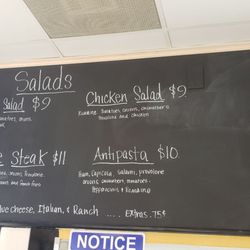 Salads
Salad $9
Chicken Salad $9
tomatoes,
Romaine, tomatoes, onions, cucumbers
Provolone and chicken
Steak $11
Antipasta $10
Ham, Capicola, Salami, provolone
onions, cucumbers, tomatoes,
Pepperoncini, & Romaine
Blue Cheese, Italian, & Ranch .... Extras .75¢
NOTICE